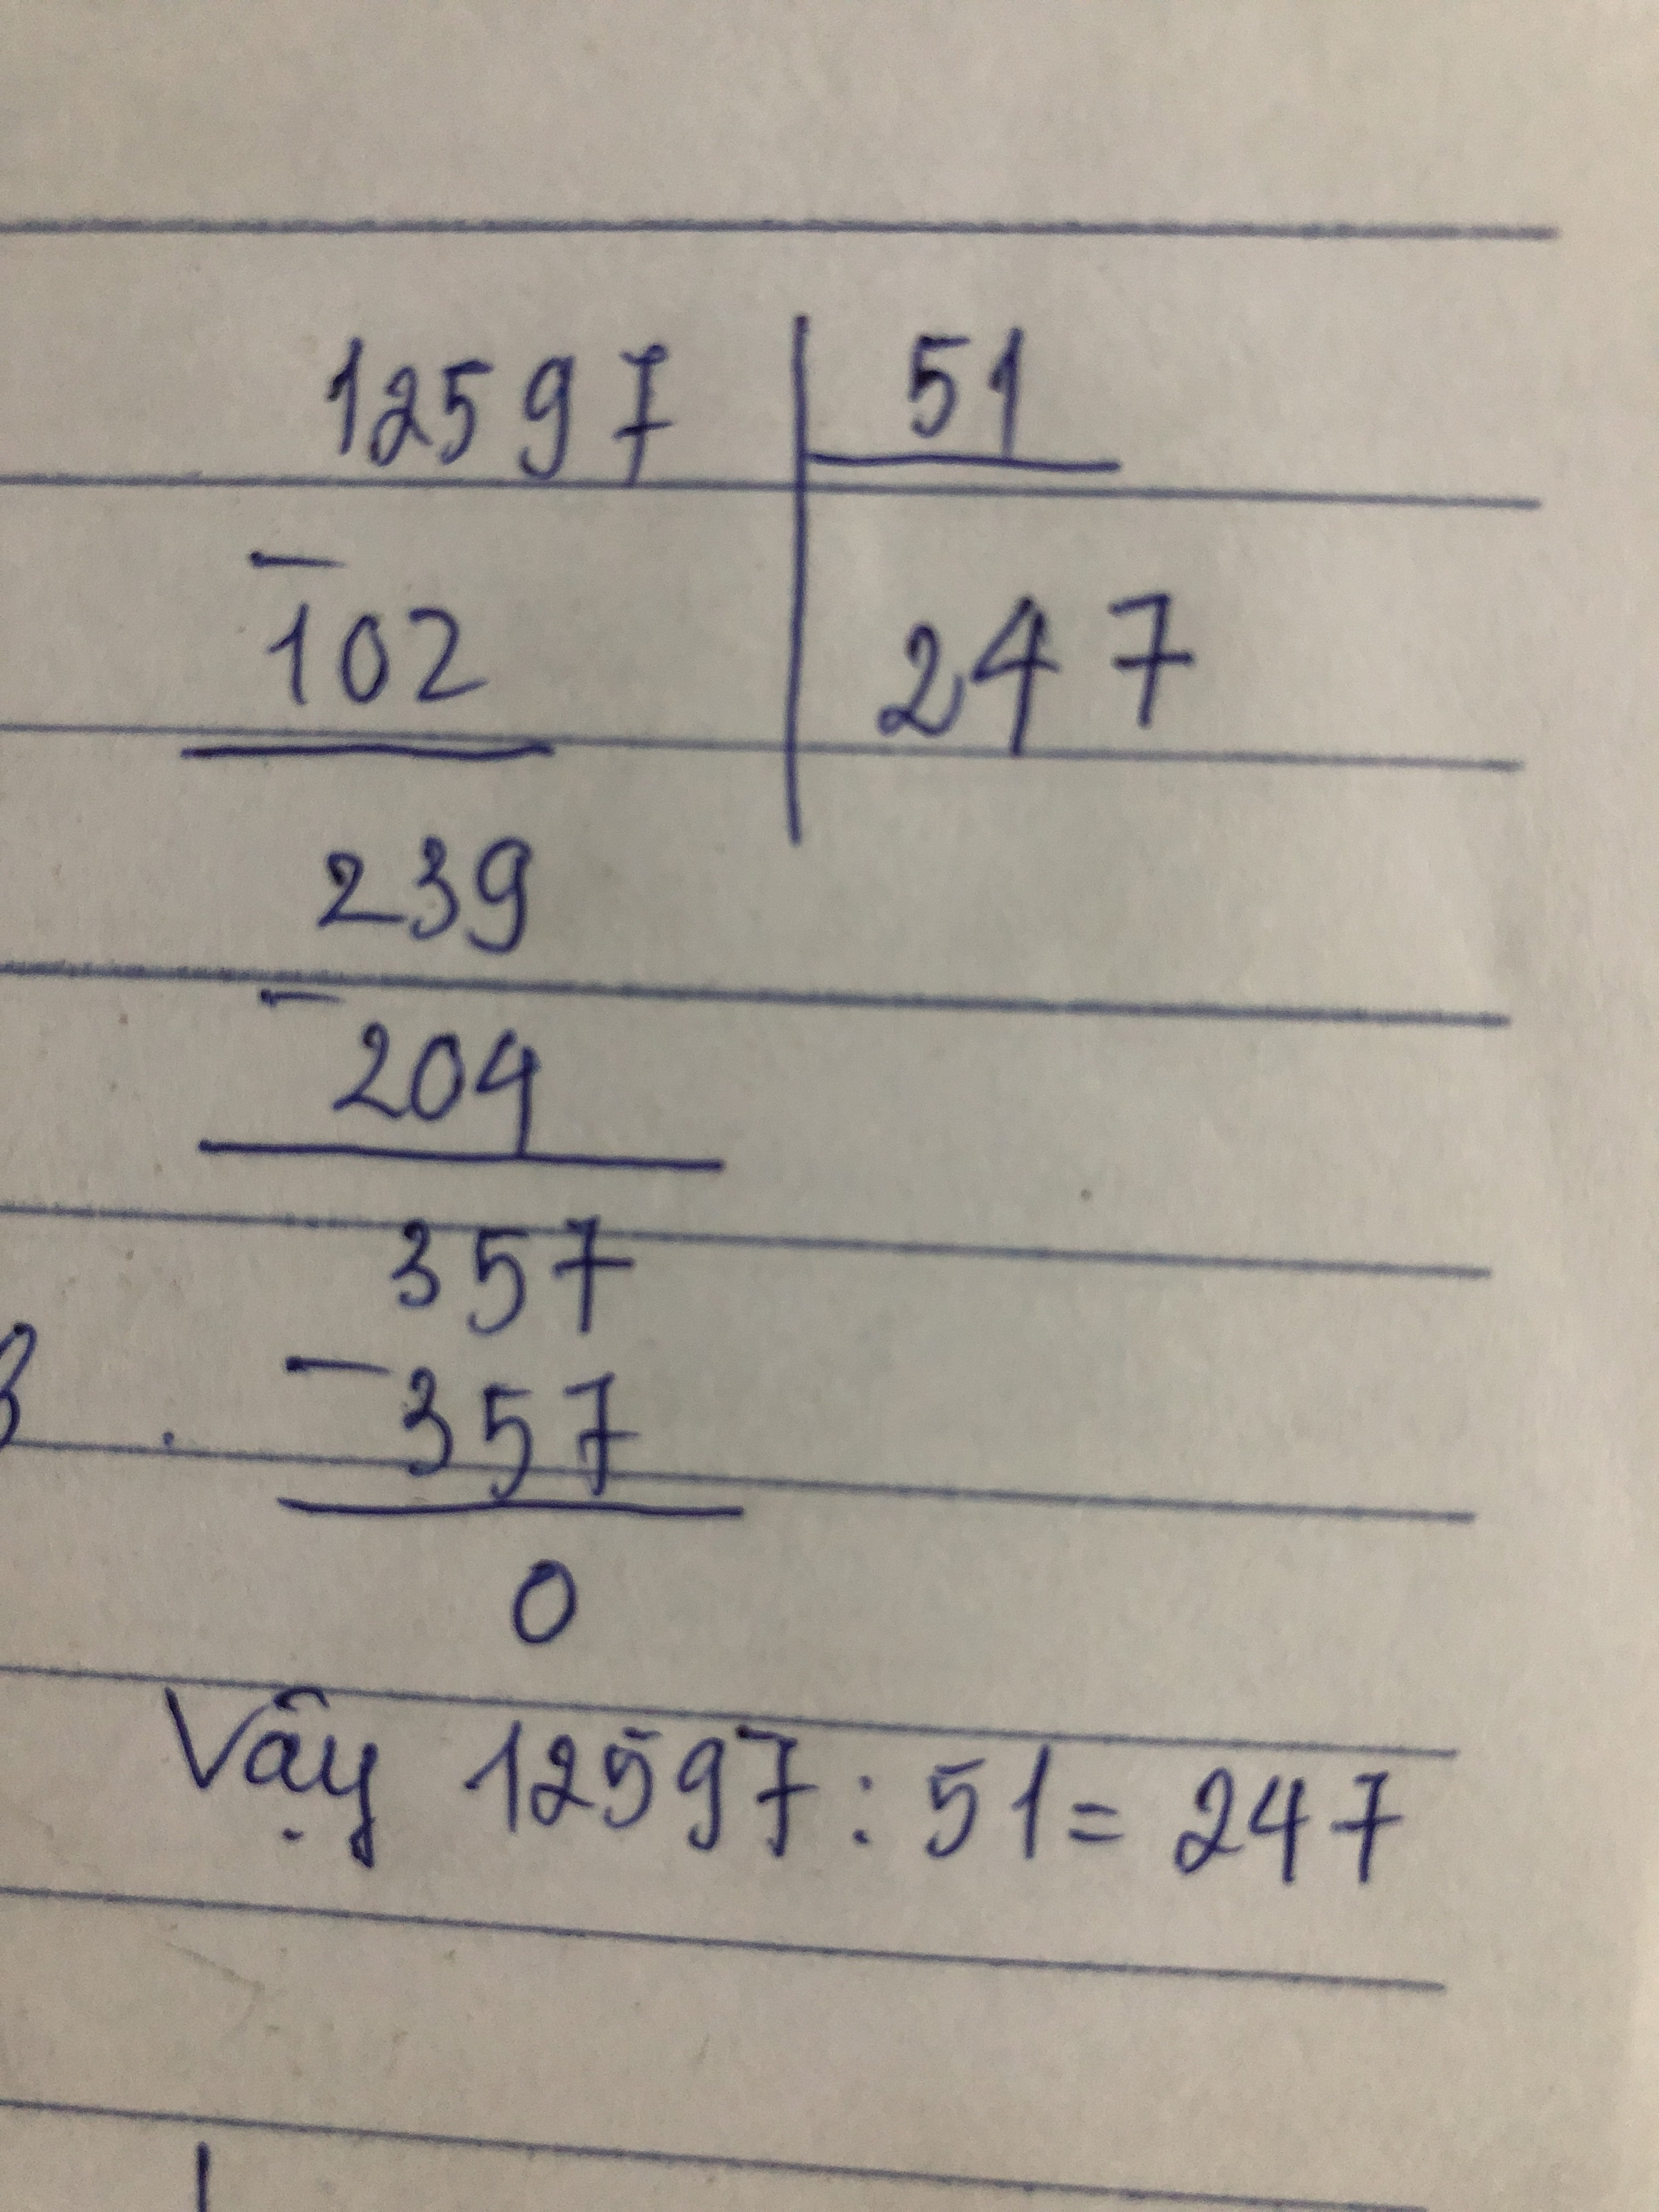 12597 51
- 102 247
239
- 204
357
- 357
0
Vậy 12597 : 51 = 247